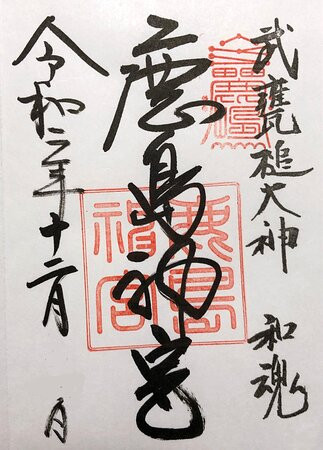 武甕槌大神　和魂
鹿島神宮
鹿島
神宮
令和二年十二月　日